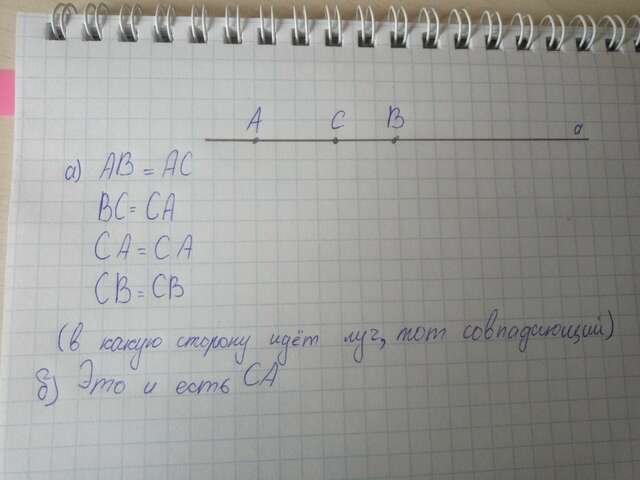 A C B a
а) AB = AC
BC = CA
CA = CA
CB = CB
(в какую сторону идёт луч, тот совпадающий)
б) Это и есть CA